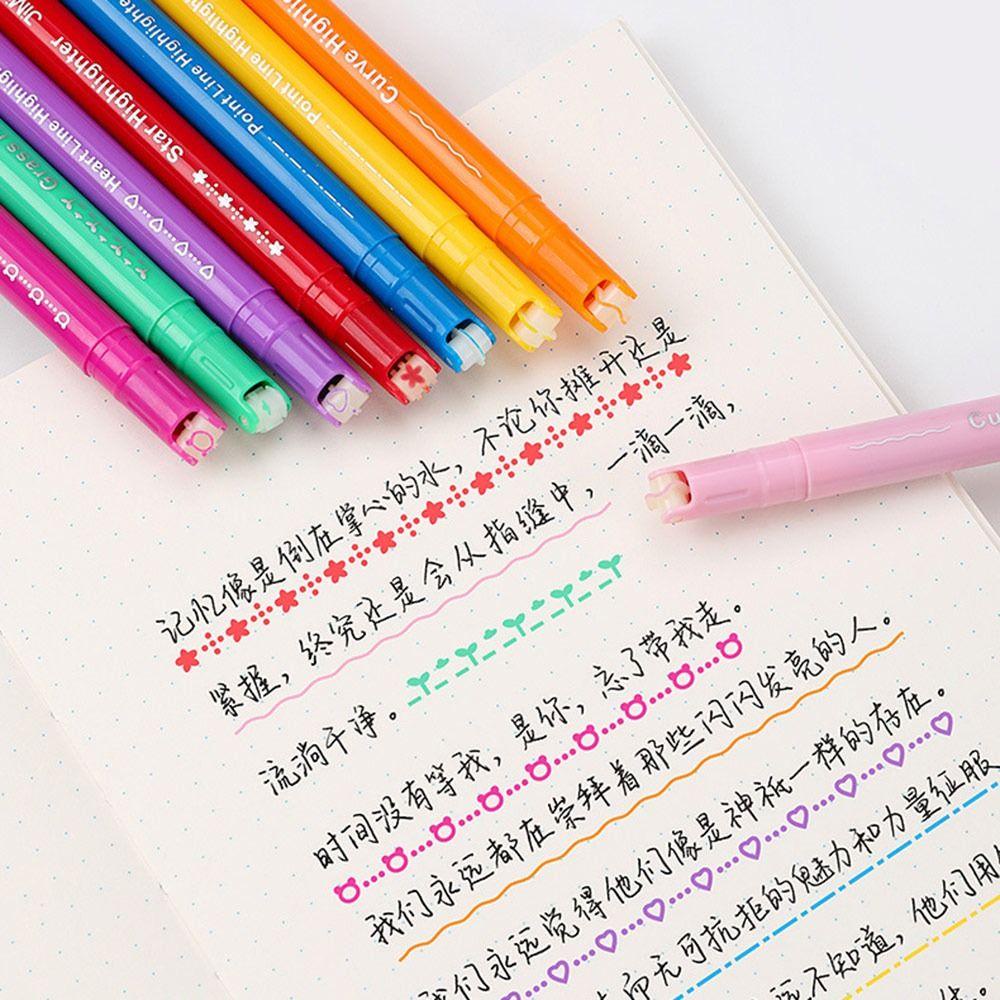 Curve Highlighter
Point Line Highlighter
Point Line Highlighter
Star Highlighter
Heart Line Highlighter
Grass
Cu
记忆像是倒在掌心的水，不论你摊开还是
紧握，终究还是会从指缝中，一滴一滴，
流淌干净。
时间没有等我，是你，忘了带我走。
我们永远都在崇拜着那些闪闪发亮的人。
我们永远觉得他们像是神祇一样的存在。
而无可抗拒的魅力和力量征服
不知道，他们用